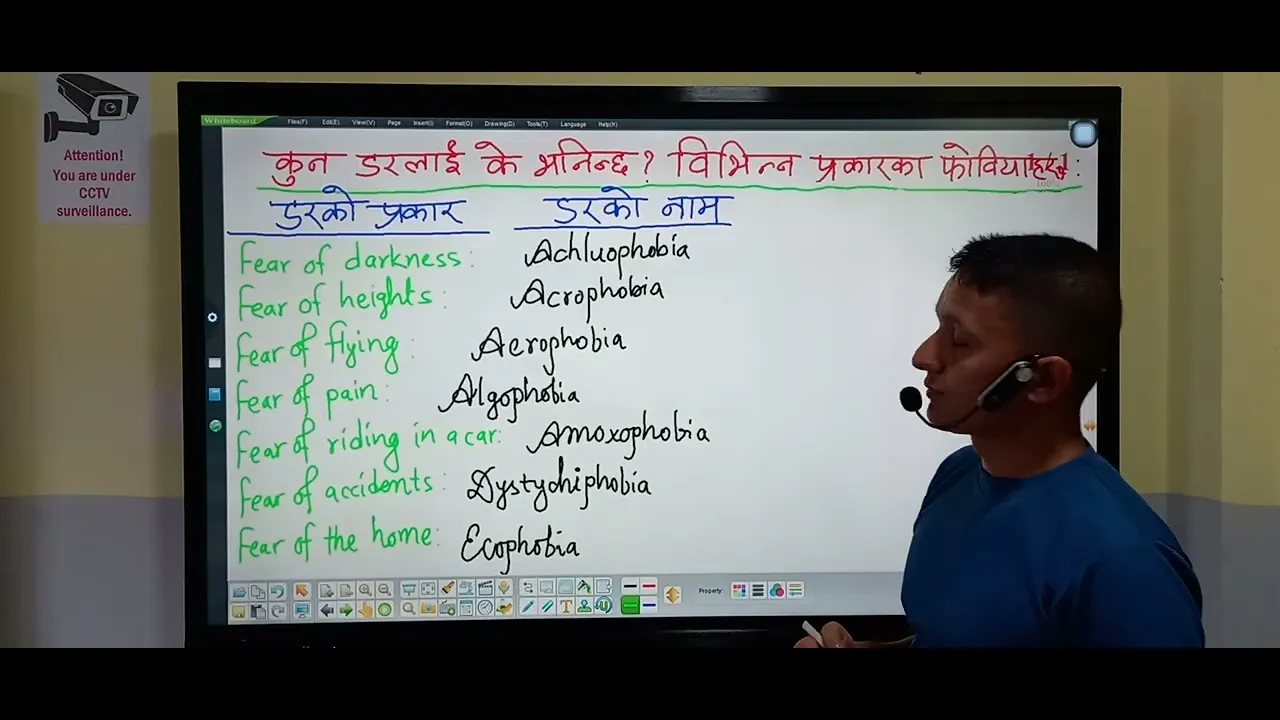 Attention!
You are under
CCTV
surveillance.
Whiteboard File(F) Edit(E) View(V) Page Insert(I) Format(O) Drawing(D) Tools(T) Language Help(H)
कुन डरलाई के भनिन्छ? विभिन्न प्रकारका फोवियाहरू:
डरको प्रकार डरको नाम
Fear of darkness: Achluophobia
Fear of heights: Acrophobia
Fear of flying: Aerophobia
Fear of pain: Algophobia
Fear of riding in a car: Amoxophobia
Fear of accidents: Dystychiphobia
Fear of the home: Ecophobia
Property: